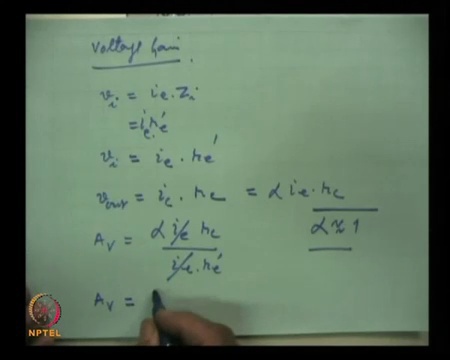 Voltage Gain
v_i = i_e . Z_i
= i_e . r_e'
v_i = i_e . r_e'
v_out = i_c . r_c = α i_e . r_c
A_v = α i_e r_c / i_e . r_e'
α ≈ 1
A_v =
NPTEL